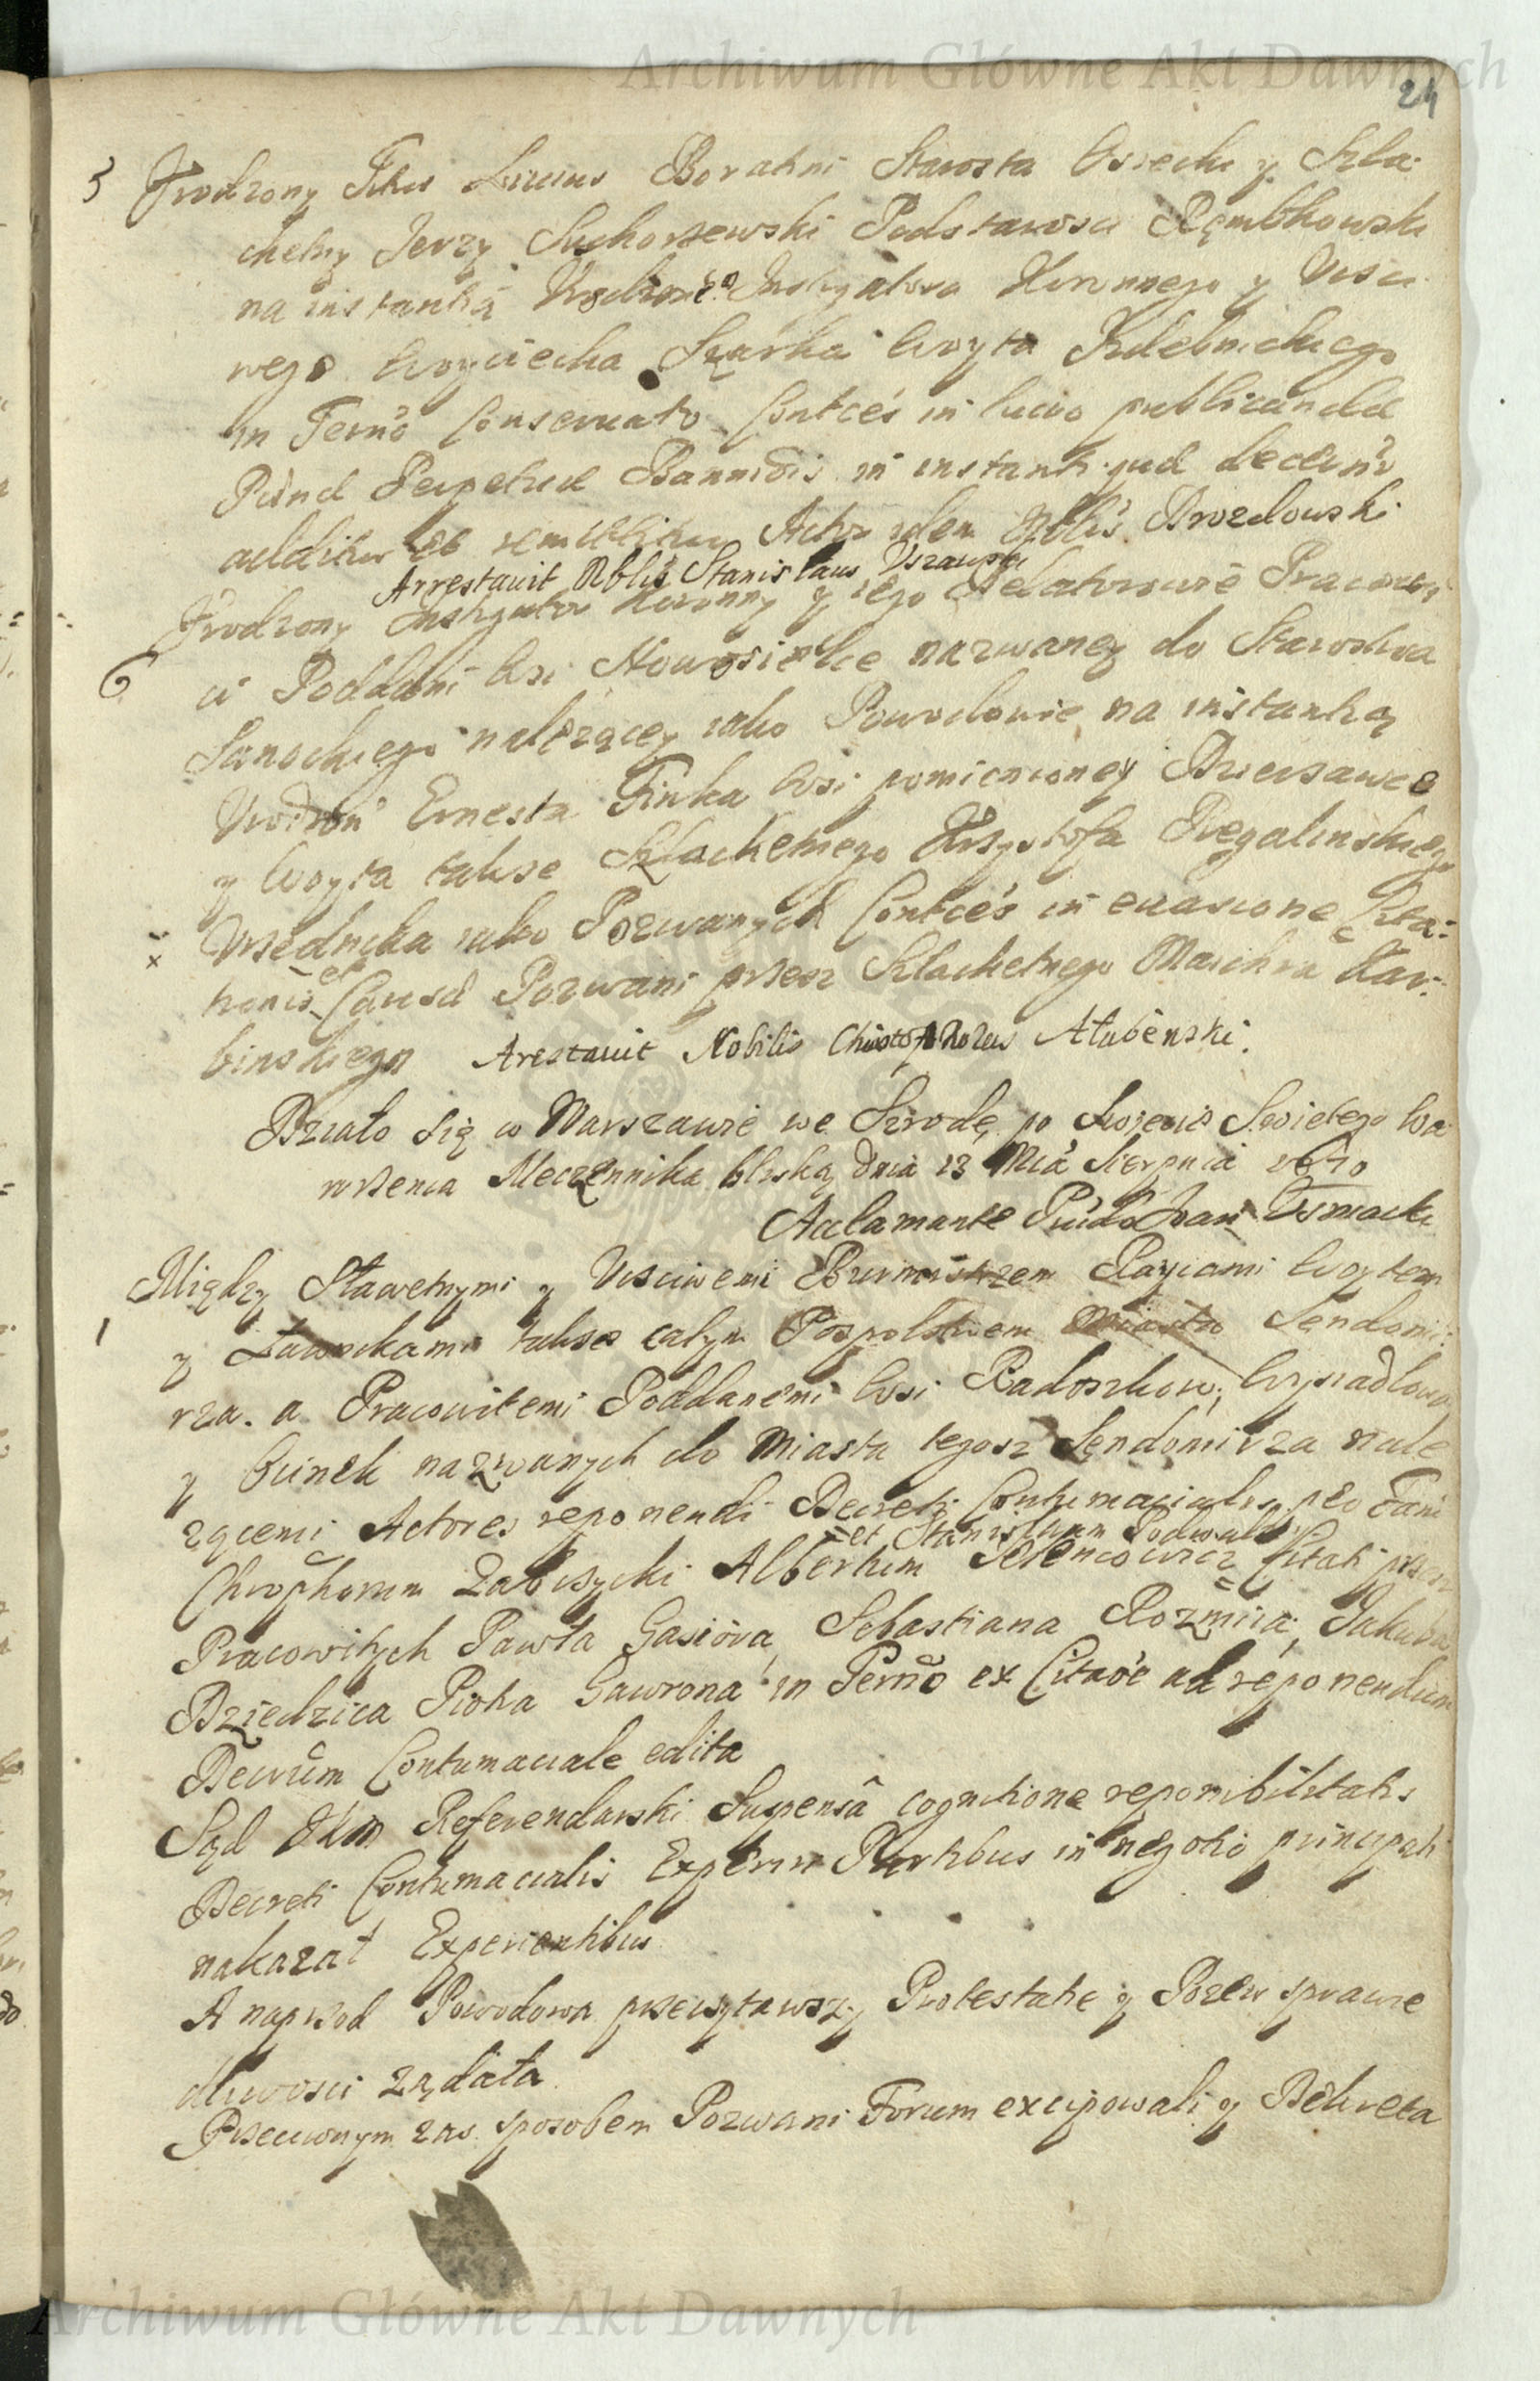 Archiwum Główne Akt Dawnych
24
5 Urodzony Titus Liuius Boratini Starosta Osiecki y Szla-
chetny Jerzy Suchorzewski Podstarosci Rembkowski
na instantią Urodzone° Instigatora Koronnego y Uści-
wego Woyciecha Szarka Woyta Kdebnickiego
in Termo Conseruato Contces in lucro publicandae
Paenae Perpetuae Bannitōis in instanti
additur et remittitur Actor idem Nblis Drozdowski
Arrestauit Nblis Stanislaus Uszawski
6 Urodzony Instigator Koronny y iego Delatorowie Pracowi-
ci Poddani Wsi Nowosielce nazwaney do Starostwa
Sanockiego nalezącey iako Powodowie na instantią
Urodzon Ernesta Finka Wsi pomienioney Dzierzawce
y Woyta takze Szlachetnego Krzysztofa Pregalinskiego
Urzednika iako Pozwanych Contces in euasione Rela-
tionis et Causa Pozwani przez Szlachetnego Marcina Kar-
binskiego Arestauit Nobilis Christophorus Atabienski.
Działo się w Warszawie we Szrodę po Swięcie Swietego Wa
wrzenca Meczennika bliską Dnia 13 Mca Sierpnia 1670
Acclamante Prūdo Joan Osmacki
1 Między Sławetnymi y Usciwemi Burmistrzem Raycami Woytem
y Ławnikami takze całym Pospolstwem Miasta Sendomi-
rza. a Pracowitemi Poddanemi Wsi Radoszkow, Wysiadlow
y Kicinek nazwanych do Miasta tegosz Sendomirza nale
zącemi Actores reponendi Decreti Contumacialis pro Fam
et Stanislaum Podwalski
Chrophorum Zabiszycki Albertum Selencowicz Citati przez
Pracowitych Pawła Gasiora, Sebastiana Rozmira, Jakuba
Dziedzica Piotra Gawrona in Termo ex Citāōe ad reponendum
Decrūm Contumaciale edita
Sąd JKM Referendarski Suspensâ cognitione reponibilitatis
Decreti Contumacialis Experiri Partibus in negotio principali
nakazał Experientibus
A naprzod Powodowa przeczytawszy Protestatie y Pozew sprawie
dliwosci ządała.
Przeciwnym zas sposobem Pozwani Forum excipowali y Dekreta
Archiwum Główne Akt Dawnych